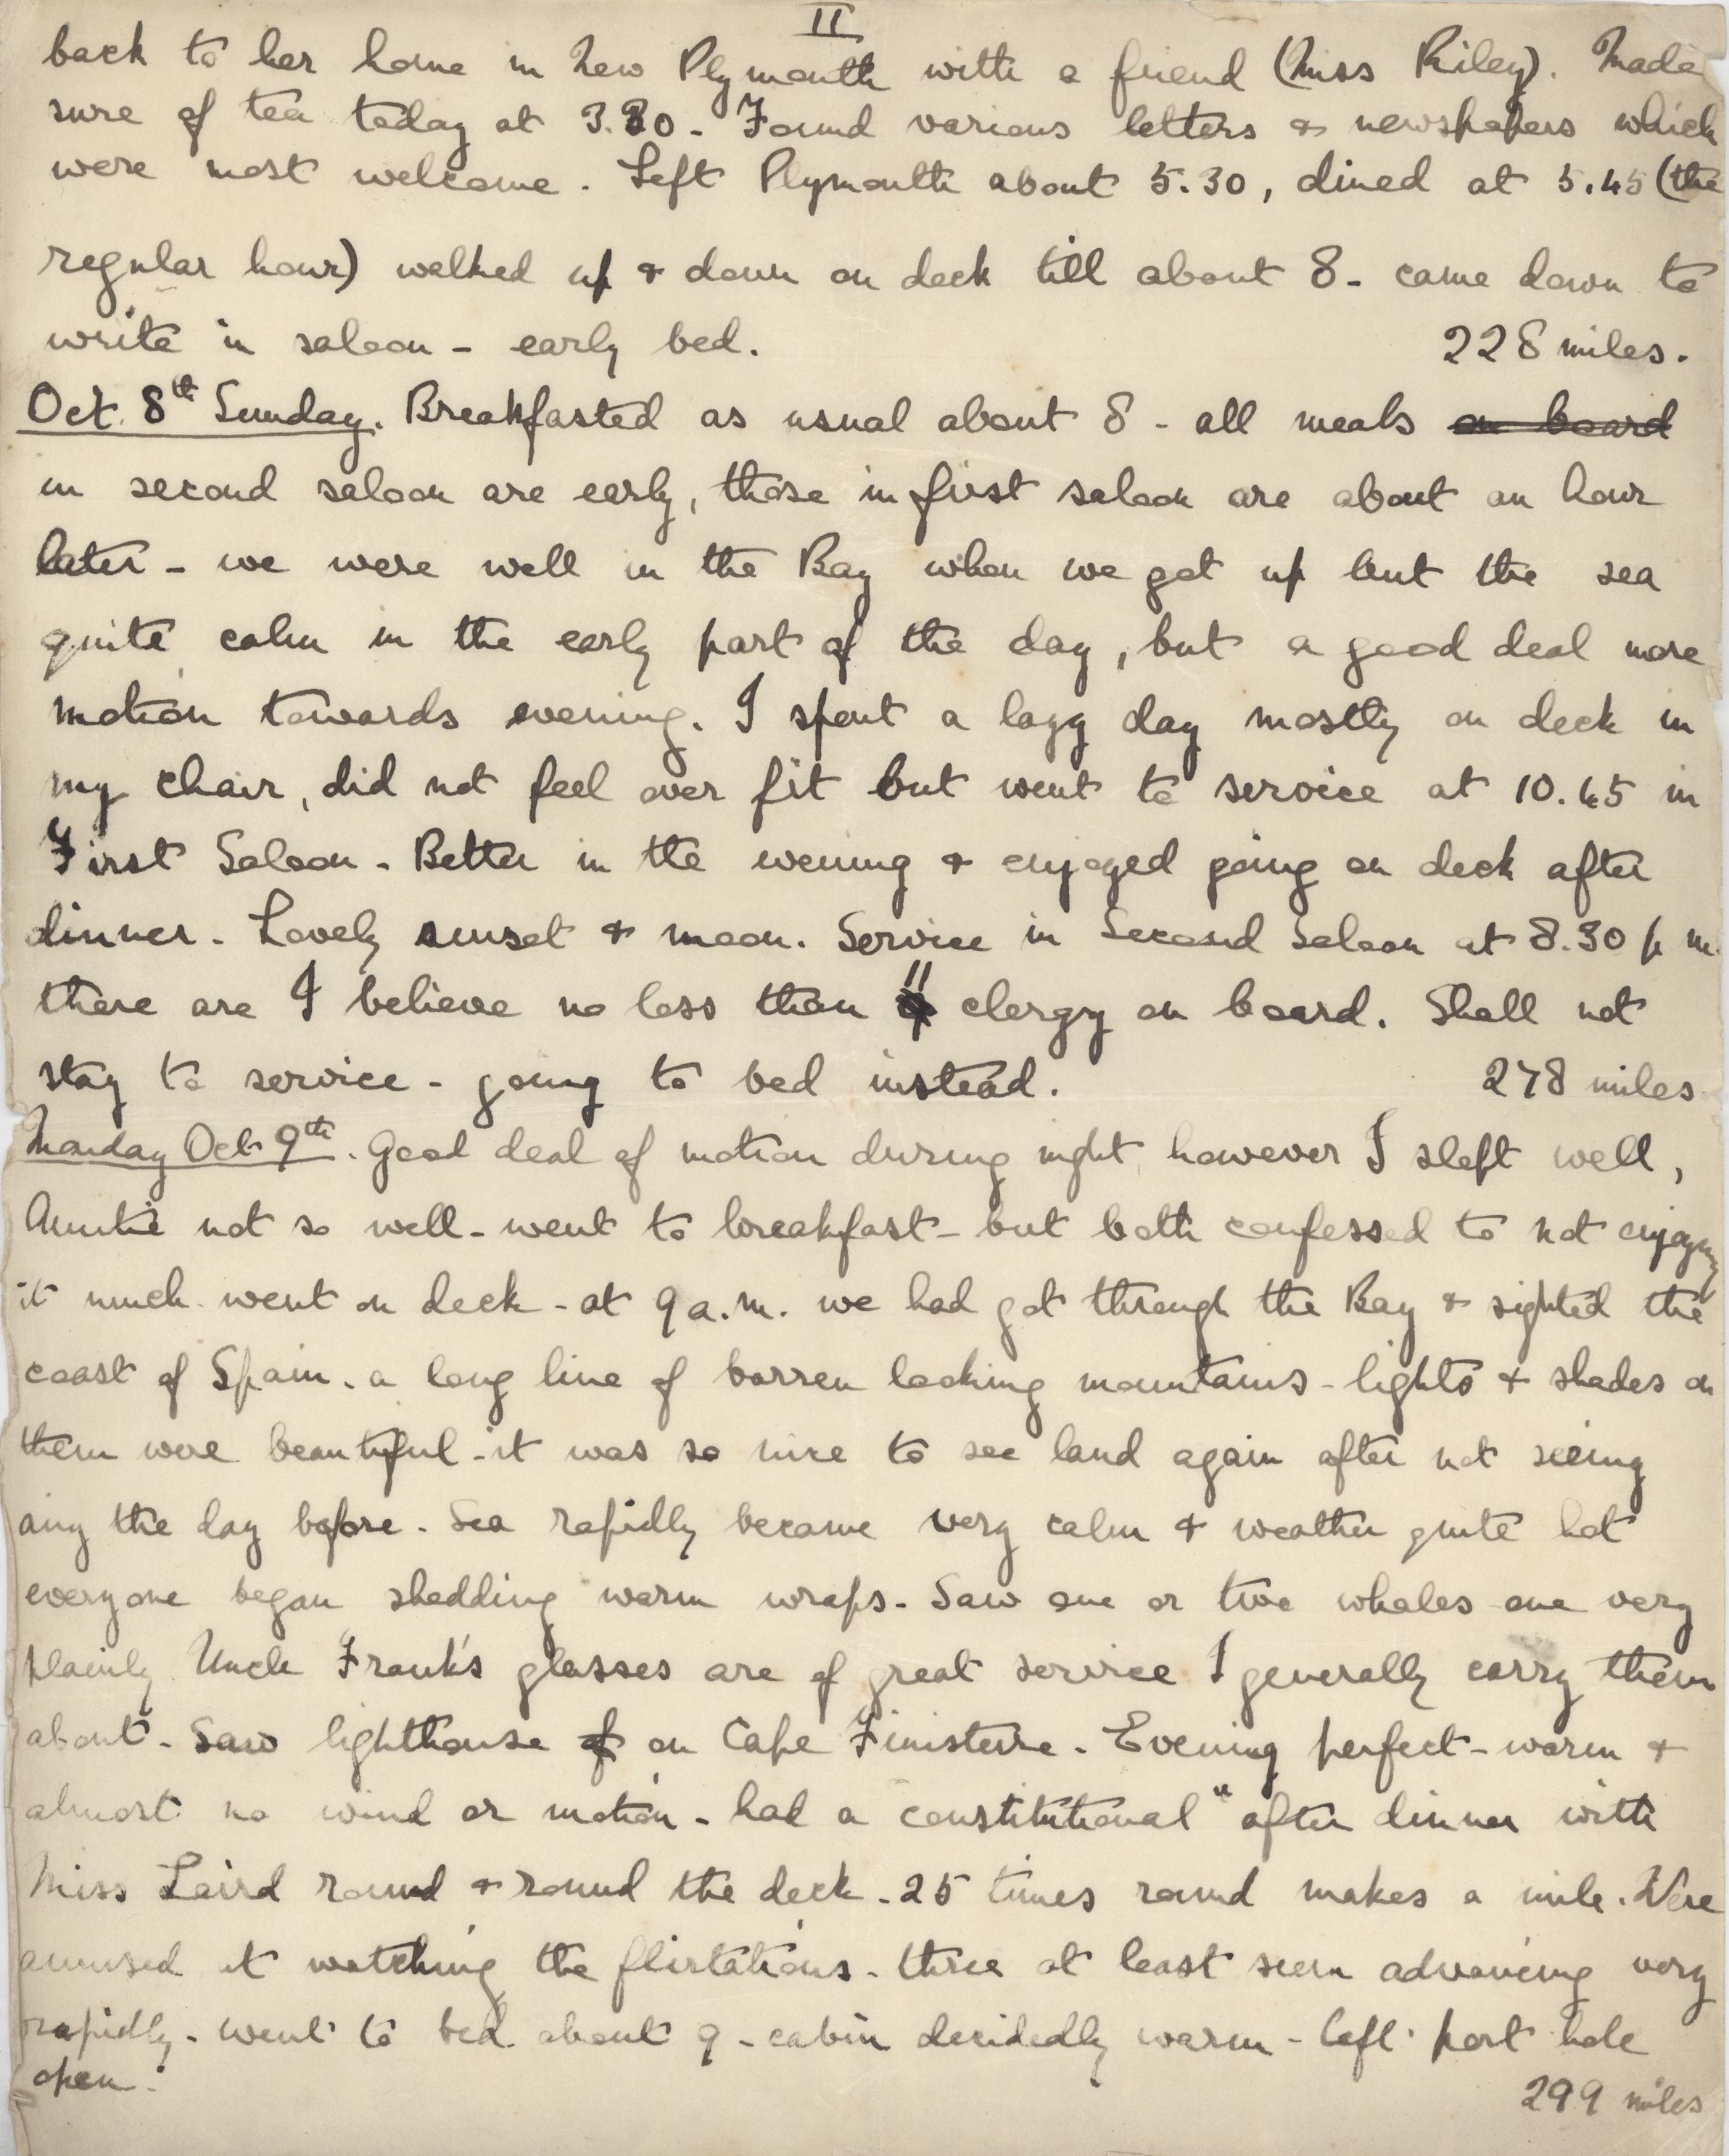 II
back to her home in New Plymouth with a friend (Miss Riley). Made
sure of tea today at 3.30 - Found various letters & newspapers which
were most welcome. Left Plymouth about 5.30, dined at 5.45 (the
regular hour) walked up & down on deck till about 8 - came down to
write in saloon - early bed. 228 miles.
Oct. 8th Sunday. Breakfasted as usual about 8 - all meals on board
in second saloon are early, those in first saloon are about an hour
later - we were well in the Bay when we got up but the sea
quite calm in the early part of the day, but a good deal more
motion towards evening. I spent a lazy day mostly on deck in
my chair, did not feel over fit but went to service at 10.45 in
First Saloon - Better in the evening & enjoyed going on deck after
dinner - Lovely sunset & moon. Service in Second Saloon at 8.30 p m.
there are I believe no less than 11 clergy on board. Shall not
stay to service - going to bed instead. 278 miles
Monday Oct 9th. Good deal of motion during night, however I slept well,
Auntie not so well - went to breakfast - but both confessed to not enjoying
it much - went on deck - at 9 a.m. we had got through the Bay & sighted the
coast of Spain - a long line of barren looking mountains - lights & shades on
them were beautiful - it was so nice to see land again after not seeing
any the day before. Sea rapidly became very calm & weather quite hot
everyone began shedding warm wraps. Saw one or two whales one very
plainly. Uncle Frank's glasses are of great service I generally carry them
about - Saw lighthouse of on Cape Finisterre. Evening perfect - warm &
almost no wind or motion - had a constitutional" after dinner with
Miss Laird round & round the deck - 25 times round makes a mile. Were
amused at watching the flirtations - three at least seem advancing very
rapidly - went to bed about 9 - cabin decidedly warm - left port hole
open. 299 miles